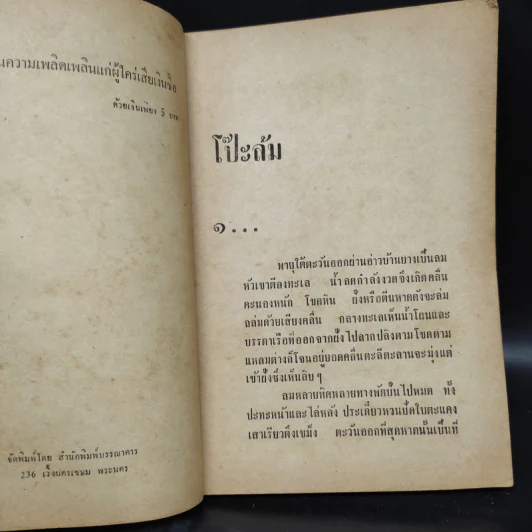 นความเพลิดเพลินแก่ผู้ใคร่เสียเงินซื้อ
ด้วยเงินเพียง 5 บาท
จัดพิมพ์โดย สำนักพิมพ์บรรณาคาร
236 เวิ้งนครเขษม พระนคร
โป๊ะล้ม
๑...
พายุใต้ตะวันออกย่านอ่าวบ้านยางเป็นลม
หัวเขาตีลงทะเล น้ำลดกำลังงวดจึงเกิดคลื่น
คะนองหนัก โขดหิน ฝั่งหรือตีนหาดดังจะล่ม
ถล่มด้วยเสียงคลื่น กลางทะเลเห็นน้ำโยนและ
บรรดาเรือที่ออกจากฝั่งไปลากปลิงตามโขดตาม
แหลมต่างก็โจนอยู่ยอดคลื่นตะลีตะลานจะมุ่งแต่
เข้าฝั่งซึ่งเห็นลิบๆ
ลมหลายทิศหลายทางพัดปั่นไปหมด ทั้ง
ปะทะหน้าและไล่หลัง ประเดี๋ยวหวนปัดใบตะแคง
เสาเรียวดึงเขม็ง ตะวันออกที่สุดหาดนั้นเป็นที่